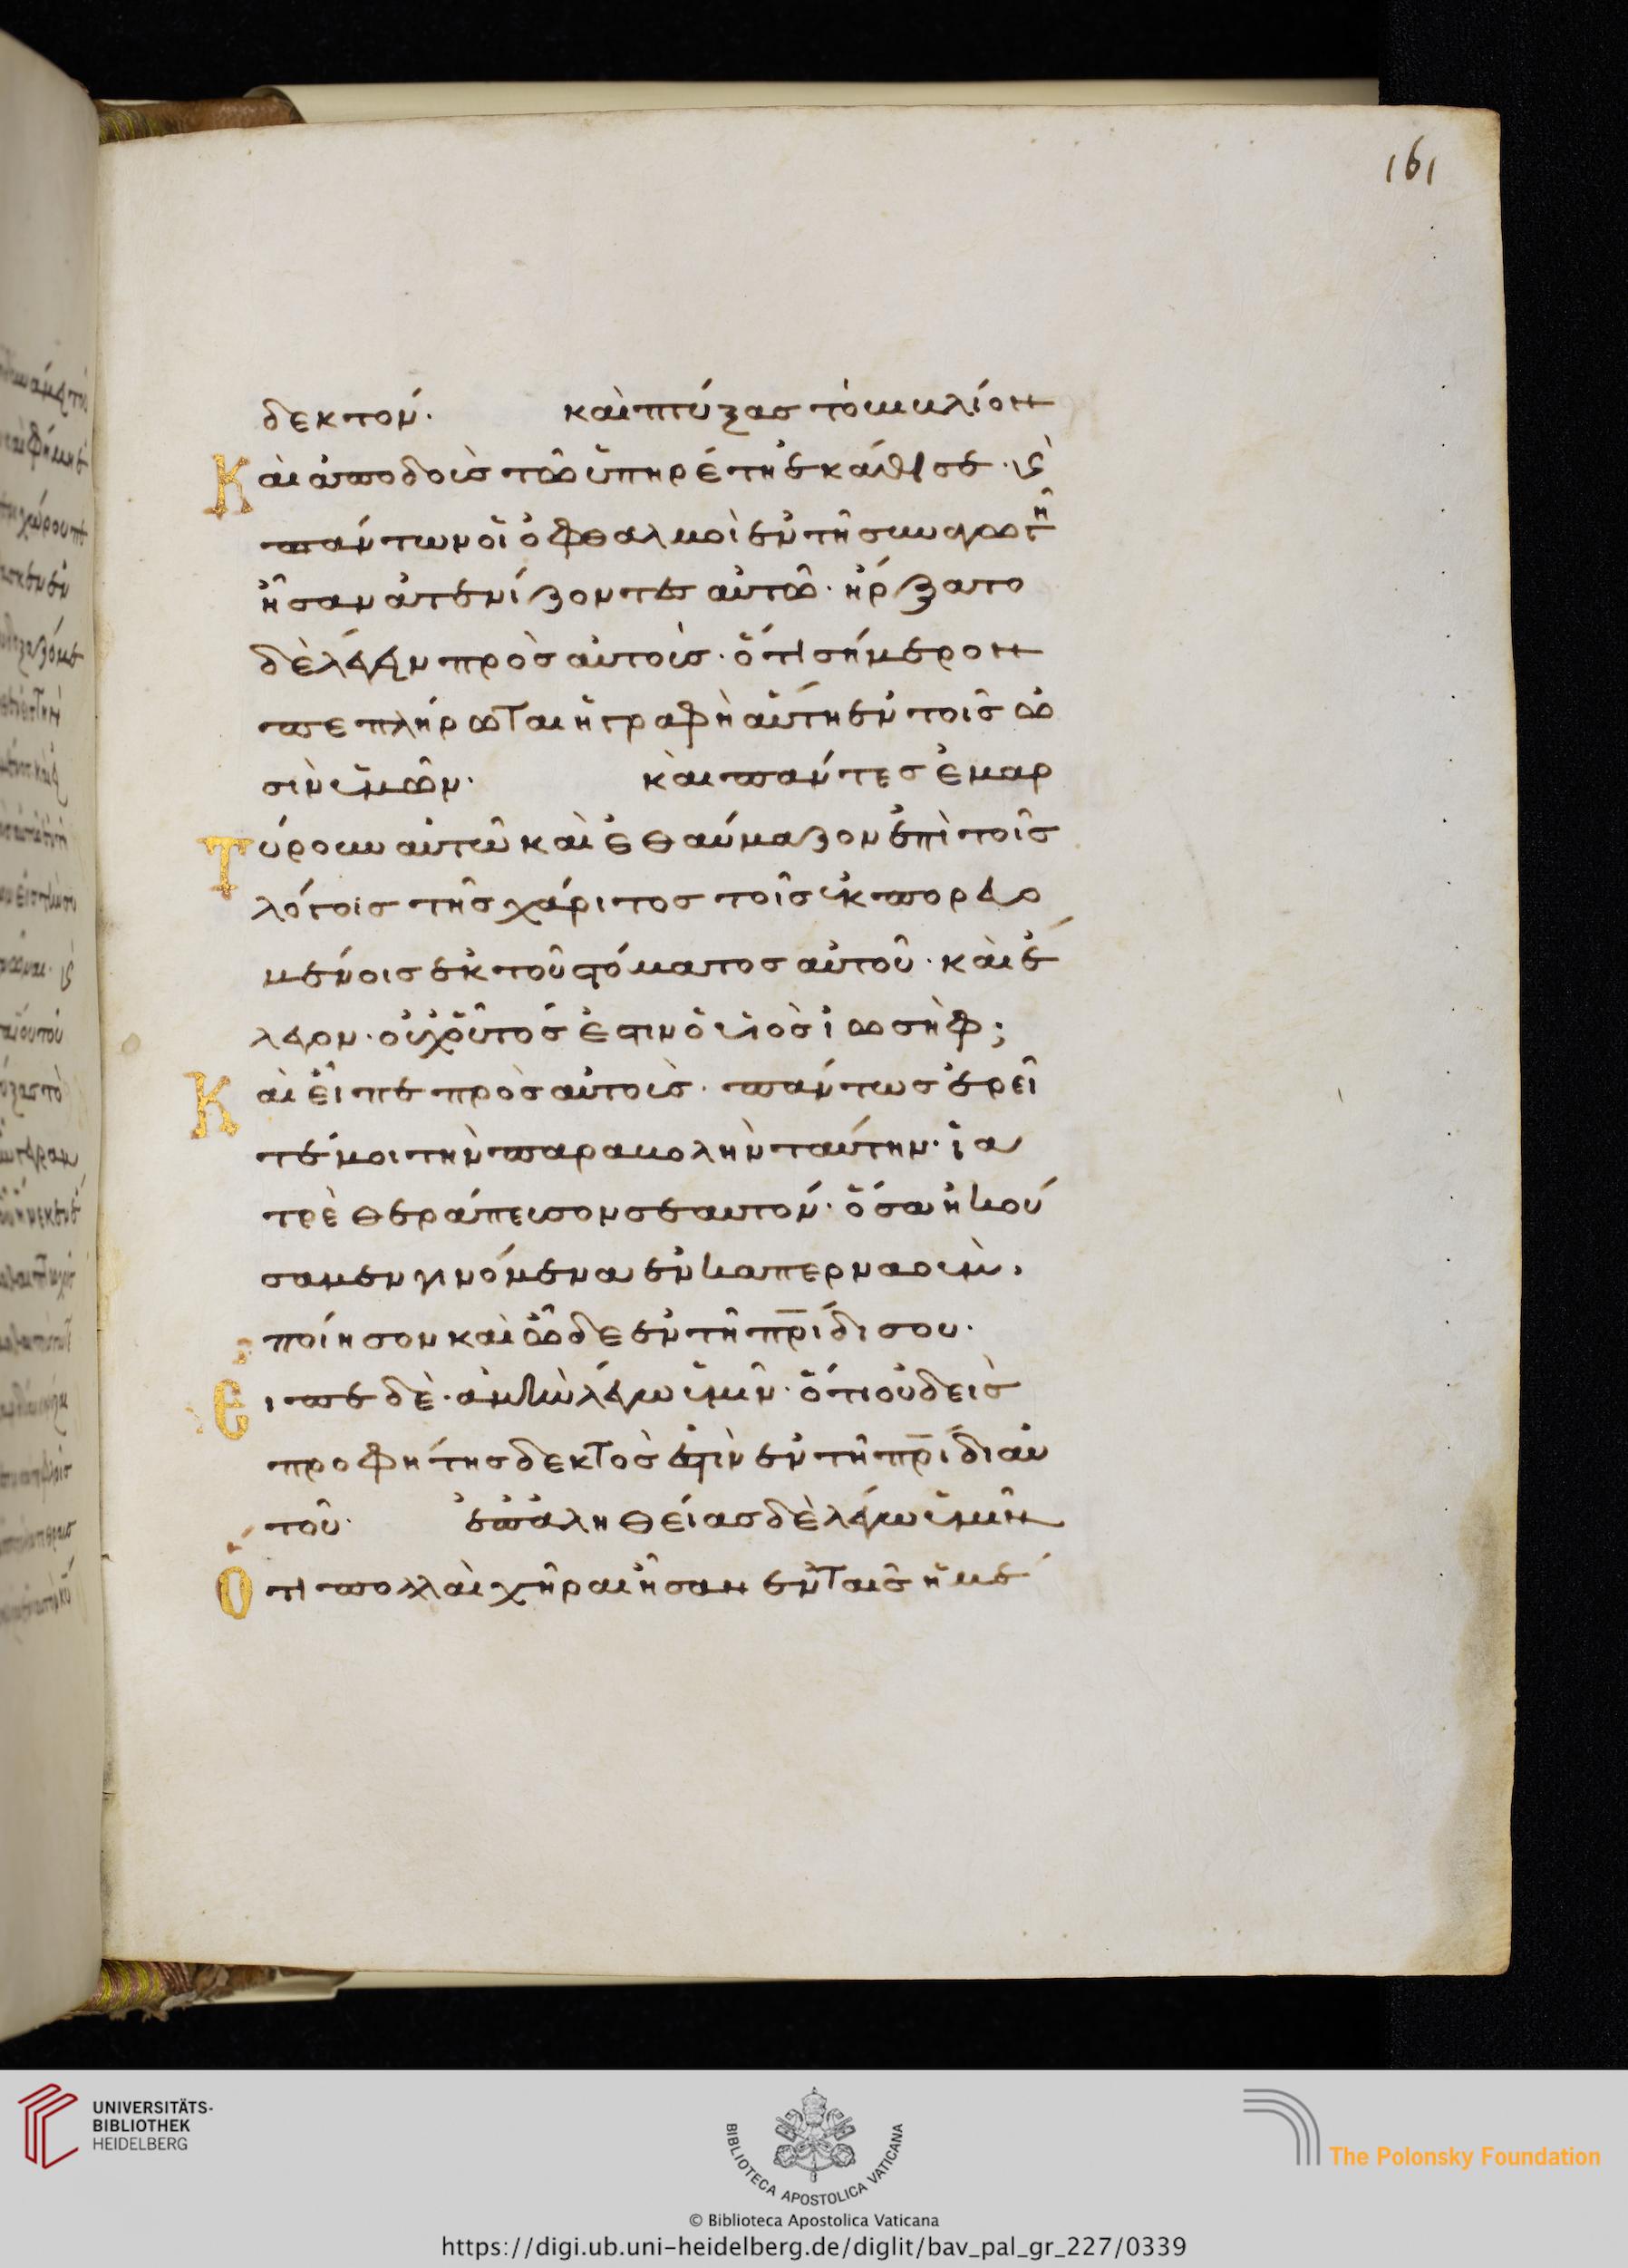 161
δεκτόν. καὶ πτύξας τὸ βιβλίον
Καὶ ἀποδοὺς τῶ ὑπηρέτη ἐκάθισε · ϗ
πάντων οἱ ὀφθαλμοὶ ἐν τῆ συναγωγῆ
ἦσαν ἀτενίζοντες αὐτῶ · ἤρξατο
δὲ λέγειν πρὸς αὐτούς · ὅτι σήμερον
πεπλήρωται ἡ γραφὴ αὕτη ἐν τοῖς ὠ
σὶν ὑμῶν · καὶ πάντες ἐμαρ
τύρουν αὐτῶ καὶ ἐθαύμαζον ἐπὶ τοῖς
λόγοις τῆς χάριτος τοῖς ἐκπορευο
μένοις ἐκ τοῦ στόματος αὐτοῦ · καὶ ἔ
λεγον · οὐχ οὗτός ἐστιν ὁ υἱὸς ἰωσήφ ;
Καὶ εἶπε πρὸς αὐτούς · πάντως ἐρεῖ
τέ μοι τὴν παραβολὴν ταύτην · ἰα
τρὲ θεράπευσον σεαυτόν · ὅσα ἠκού
σαμεν γινόμενα ἐν καπερναούμ ·
ποίησον καὶ ὧδε ἐν τῆ πρ̅ίδι σου ·
Εἶπε δὲ · ἀμὴν λέγω ὑμῖν · ὅτι οὐδεὶς
προφήτης δεκτός ἐστιν ἐν τῆ πρ̅ίδι αὐ
τοῦ · ἐπ' ἀληθείας δὲ λέγω ὑμῖν
Ὅτι πολλαὶ χῆραι ἦσαν ἐν ταῖς ἡμέ
UNIVERSITÄTS-
BIBLIOTHEK
HEIDELBERG
BIBLIOTECA APOSTOLICA VATICANA
The Polonsky Foundation
© Biblioteca Apostolica Vaticana
https://digi.ub.uni-heidelberg.de/diglit/bav_pal_gr_227/0339